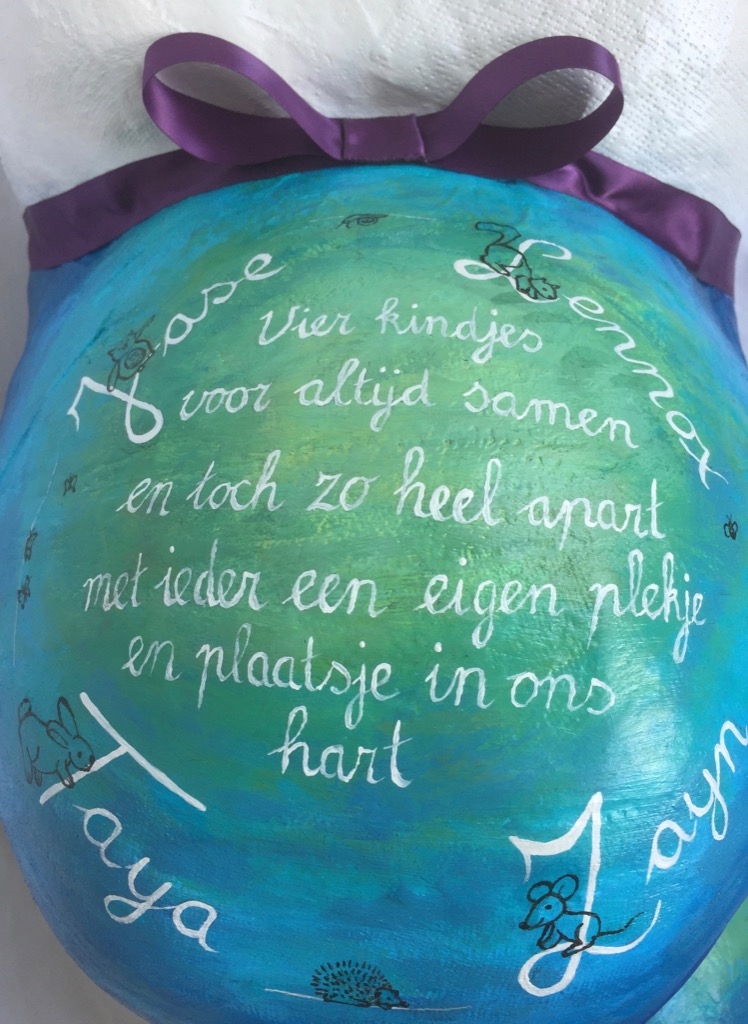 Jase
Lennox
Vier kindjes
voor altijd samen
en toch zo heel apart
met ieder een eigen plekje
en plaatsje in ons
hart
Taya
Zayn